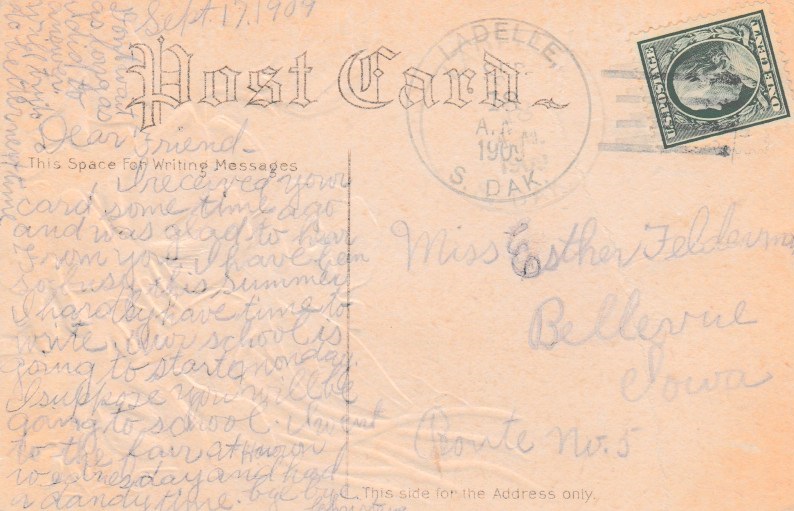 Sept. 17, 1909
Post Card
LADELLE,
A.M.
1909
S. DAK.
U.S. POSTAGE
ONE CENT
Dear Friend.
This Space For Writing Messages
I received your
card some time ago
and was glad to hear
from you. I have been
so busy this summer
I hardly have time to
write. Our school is
going to start monday.
I suppose you will be
going to school. I went
to the fair at Huron
wednesday and had
a dandy time. bye bye
Miss Esther Felderman
Bellevue
Iowa
Route No. 5
This side for the Address only.